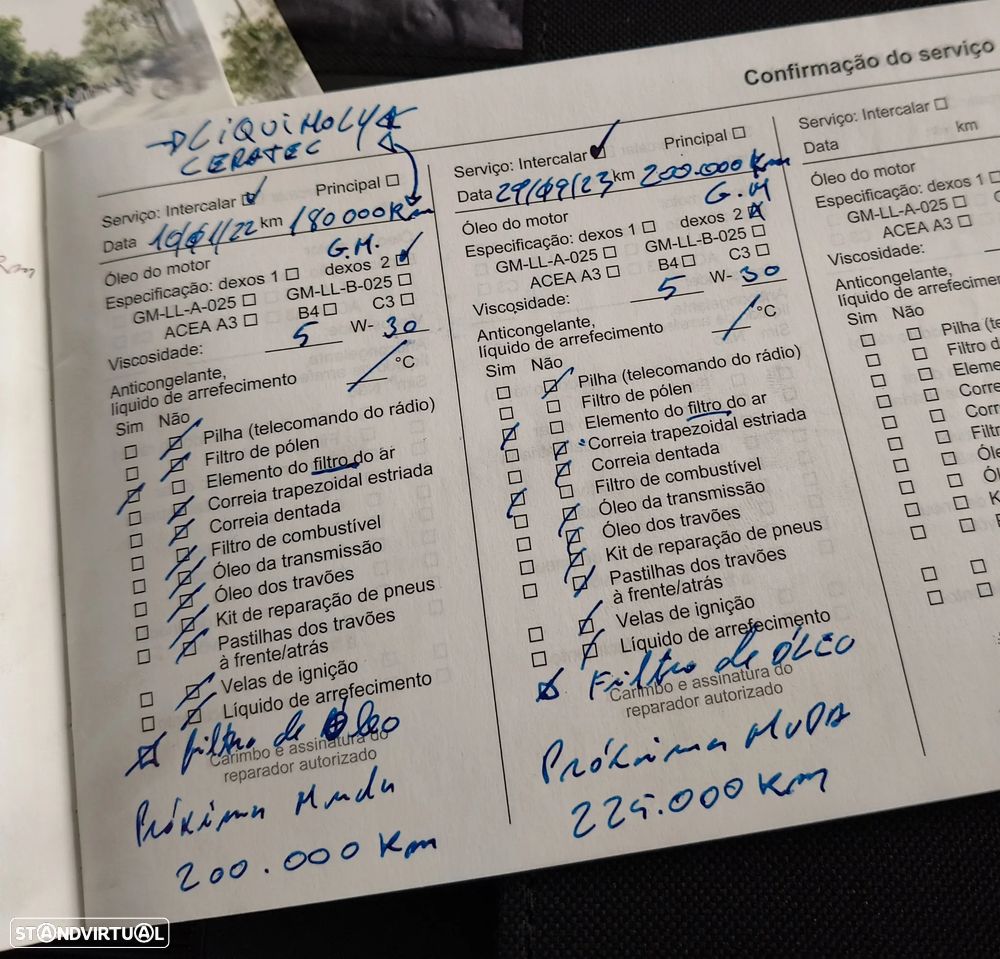 Confirmação do serviço
→ LiQUiMOLY
CERATEC
Serviço: Intercalar Principal
Data /22 km 180000 Km
Óleo do motor G.M.
Especificação: dexos 1 dexos 2
GM-LL-A-025 GM-LL-B-025
ACEA A3 B4 C3
Viscosidade: 5 W- 30
Anticongelante,
líquido de arrefecimento / °C
Sim Não
Pilha (telecomando do rádio)
Filtro de pólen
Elemento do filtro do ar
Correia trapezoidal estriada
Correia dentada
Filtro de combustível
Óleo da transmissão
Óleo dos travões
Kit de reparação de pneus
Pastilhas dos travões
à frente/atrás
Velas de ignição
Líquido de arrefecimento
filtro de Óleo
Carimbo e assinatura do
reparador autorizado
Próxima Muda
200.000 Km
Serviço: Intercalar Principal
Data 29/09/23 km 200.000 Km
Óleo do motor G.M
Especificação: dexos 1 dexos 2
GM-LL-A-025 GM-LL-B-025
ACEA A3 B4 C3
Viscosidade: 5 W- 30
Anticongelante,
líquido de arrefecimento / °C
Sim Não
Pilha (telecomando do rádio)
Filtro de pólen
Elemento do filtro do ar
Correia trapezoidal estriada
Correia dentada
Filtro de combustível
Óleo da transmissão
Óleo dos travões
Kit de reparação de pneus
Pastilhas dos travões
à frente/atrás
Velas de ignição
Líquido de arrefecimento
Filtro de ÓLEO
Carimbo e assinatura do
reparador autorizado
Próxima MUDA
225.000 Km
Serviço: Intercalar
Data km
Óleo do motor
Especificação: dexos 1
GM-LL-A-025
ACEA A3
Viscosidade:
Anticongelante,
líquido de arrefecimen
Sim Não
Pilha (t
Filtro d
Eleme
Corre
Corr
Filtr
Óle
Ól
K
STANDVIRTUAL